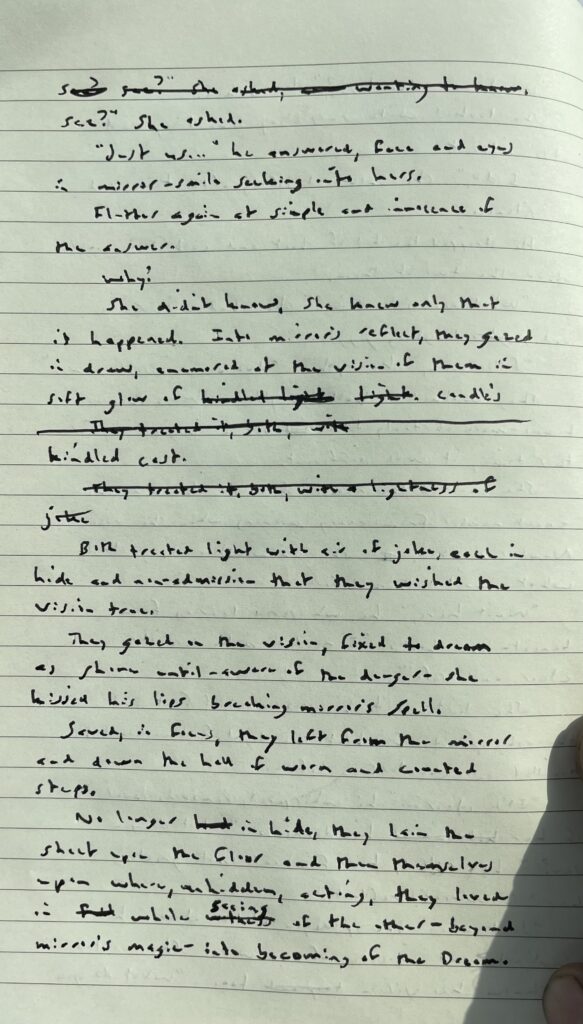 see? see?" she asked, wanting to know.
see?" she asked.
"Just us..." he answered, face and eyes
in mirror-smile seeking into hers.
Flutter again at simple and innocence of
the answer.
Why?
She didn't know, she knew only that
it happened. Into mirror's reflect, they gazed
in draw, enamored at the vision of them in
soft glow of kindled light light. candle's
They treated it, both, with
kindled cast.
They treated it, both, with a lightness of
joke
Both treated light with air of joke, each in
hide and non-admission that they wished the
vision true.
They gazed on the vision, fixed to dream
as shone until-aware of the danger-she
kissed his lips breaking mirror's spell.
Saved, in focus, they left from the mirror
and down the hall of worn and counted
steps.
No longer in hide, they lain the
sheet upon the floor and then themselves
upon where, unhidden, acting, they loved
in full whole witness seeing of the other-beyond
mirror's magic-into becoming of the Dream.